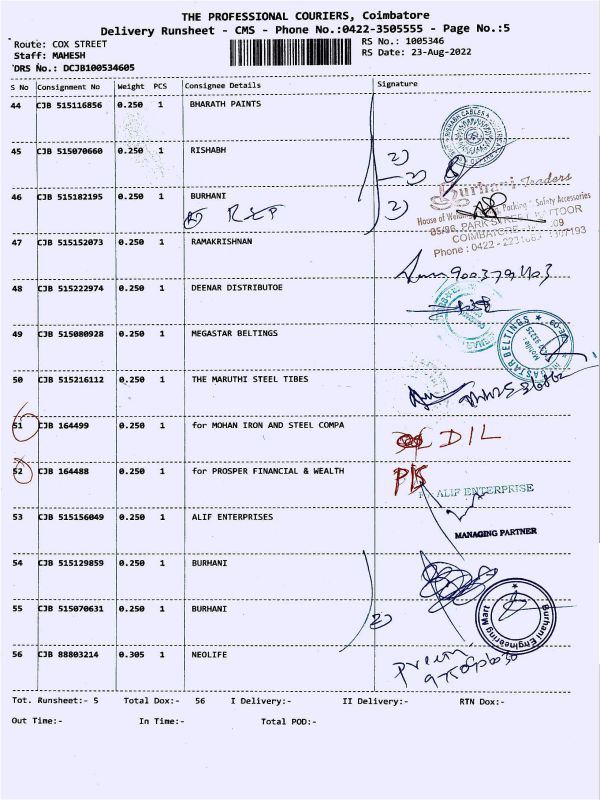 THE PROFESSIONAL COURIERS, Coimbatore
Delivery Runsheet - CMS - Phone No.:0422-3505555 - Page No.:5
Route: COX STREET
RS No.: 1005346
Staff: MAHESH
RS Date: 23-Aug-2022
DRS No.: DCJB100534605
S No Consignment No Weight PCS Consignee Details Signature
44 CJB 515116856 0.250 1 BHARATH PAINTS
45 CJB 515070660 0.250 1 RISHABH
46 CJB 515182195 0.250 1 BURHANI
Burhani Traders
Packing Safety Accessories
House of
85/96, PARK STREET,
COIMBATORE
Phone : 0422 -
47 CJB 515152073 0.250 1 RAMAKRISHNAN
48 CJB 515222974 0.250 1 DEENAR DISTRIBUTOE
49 CJB 515080928 0.250 1 MEGASTAR BELTINGS
MEGASTAR BELTINGS
Mobile :
50 CJB 515216112 0.250 1 THE MARUTHI STEEL TIBES
51 CJB 164499 0.250 1 for MOHAN IRON AND STEEL COMPA
DIL
52 CJB 164488 0.250 1 for PROSPER FINANCIAL & WEALTH
ALIF ENTERPRISE
53 CJB 515156049 0.250 1 ALIF ENTERPRISES
MANAGING PARTNER
54 CJB 515129859 0.250 1 BURHANI
55 CJB 515070631 0.250 1 BURHANI
2)
Burhan Engineering Mart
56 CJB 88803214 0.305 1 NEOLIFE
Tot. Runsheet:- 5 Total Dox:- 56 I Delivery:- II Delivery:- RTN Dox:-
Out Time:- In Time:- Total POD:-